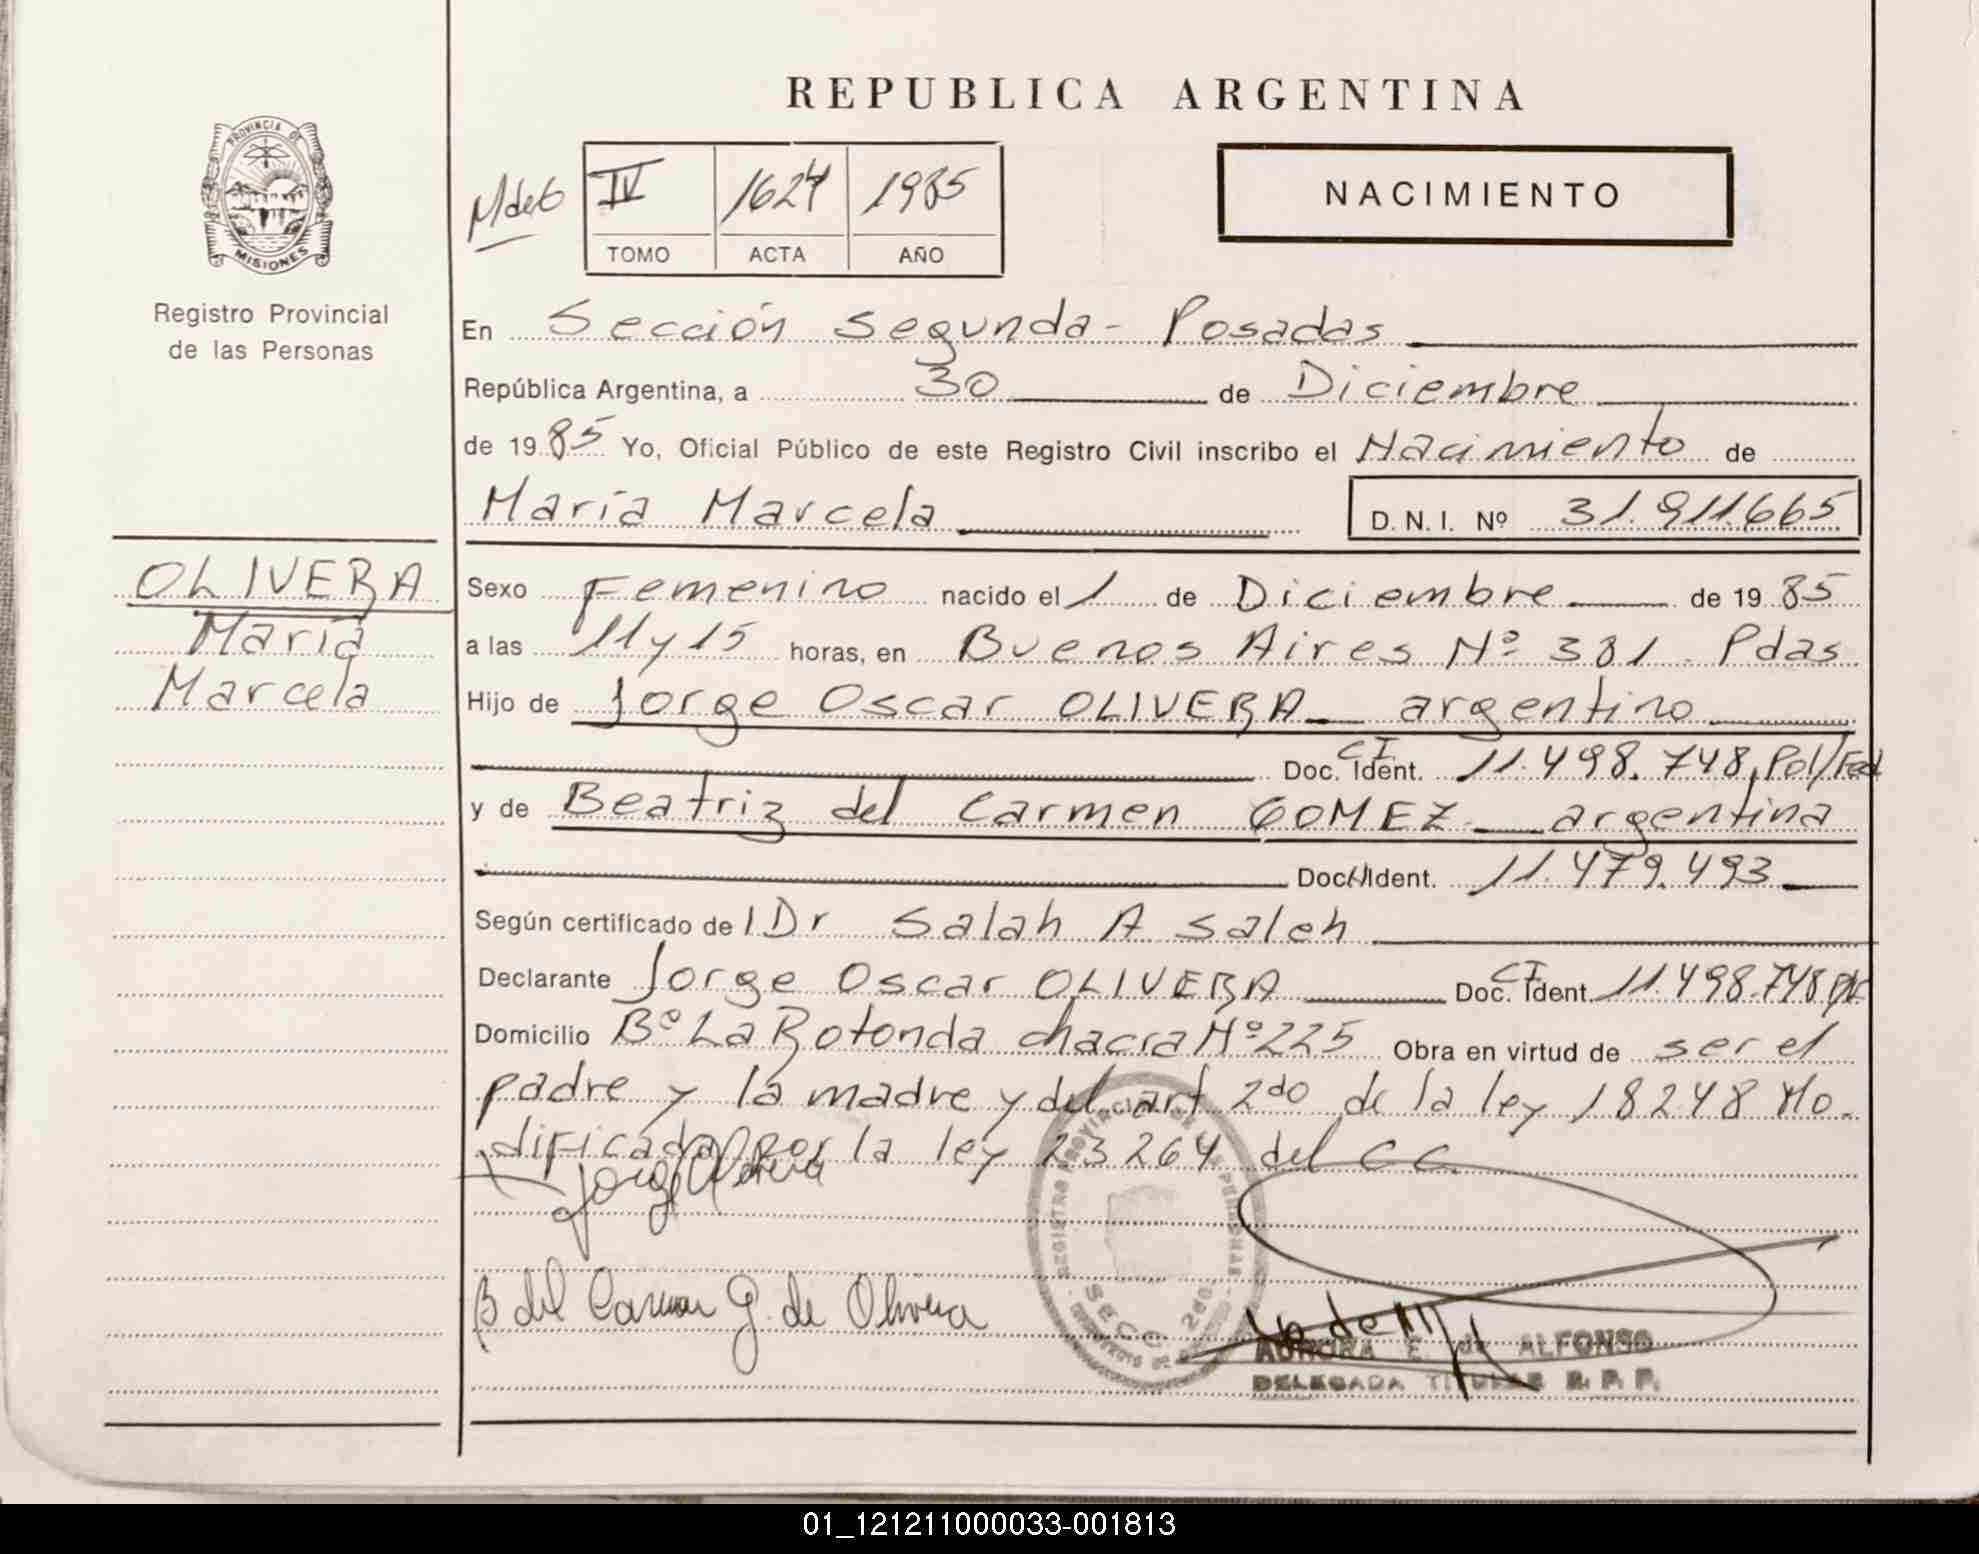 REPUBLICA ARGENTINA
PROVINCIA DE
MISIONES
Registro Provincial
de las Personas
IV 1624 1985
TOMO ACTA AÑO
NACIMIENTO
En Sección Segunda- Posadas
República Argentina, a 30 de Diciembre
de 1985 Yo, Oficial Público de este Registro Civil inscribo el Nacimiento de
María Marcela D.N.I. Nº 31.911.665
OLIVERA
María
Marcela
Sexo Femenino nacido el 1 de Diciembre de 1985
a las 11 y 15 horas, en Buenos Aires Nº 381 Pdas
Hijo de Jorge Oscar OLIVERA argentino
Doc. CI Ident. 11.498.748 Pol/Fed
y de Beatriz del Carmen GOMEZ argentina
Doc. Ident. 11.479.493
Según certificado de l Dr Salah A Saleh
Declarante Jorge Oscar OLIVERA Doc. CI Ident. 11.498.748
Domicilio Bº La Rotonda chacra Nº 225 Obra en virtud de ser el
padre y la madre y del art 2do de la ley 18248 Mo-
dificada por la ley 23264 del C C.
Jorge Olivera
B del Carmen G. de Olivera
REGISTRO PROVINCIAL DE LAS PERSONAS
SECC. 2da
AURORA E. de ALFONSO
DELEGADA TITULAR R. P. P.
01_121211000033-001813